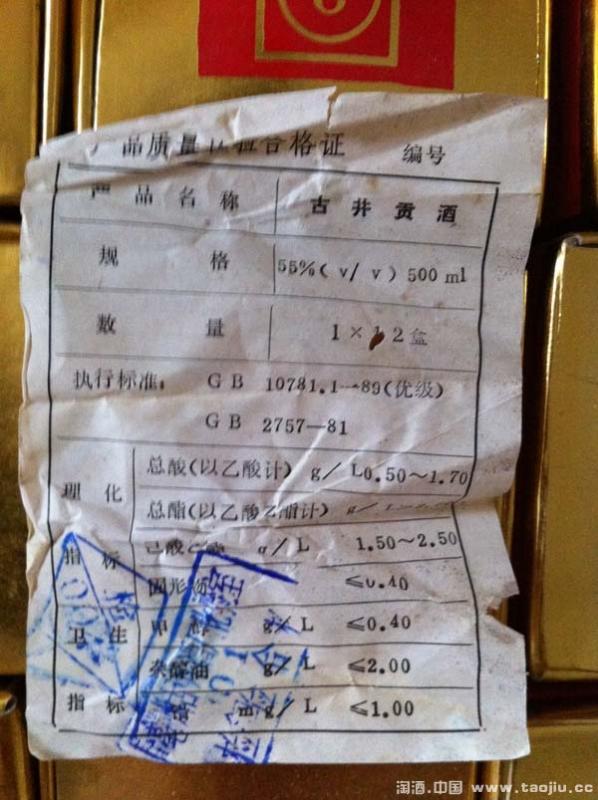 产品质量检验合格证 编号
产品名称 古井贡酒
规格 55%(v/v)500ml
数量 1×12盒
执行标准: GB 10781.1—89(优级)
GB 2757—81
理化
总酸(以乙酸计) g/L 0.50~1.70
总酯(以乙酸乙酯计) g/L
指标
己酸乙酯 g/L 1.50~2.50
固形物 ≤0.40
卫生
甲醇 g/L ≤0.40
杂醇油 g/L ≤2.00
指标
mg/L ≤1.00
淘酒.中国 www.taojiu.cc